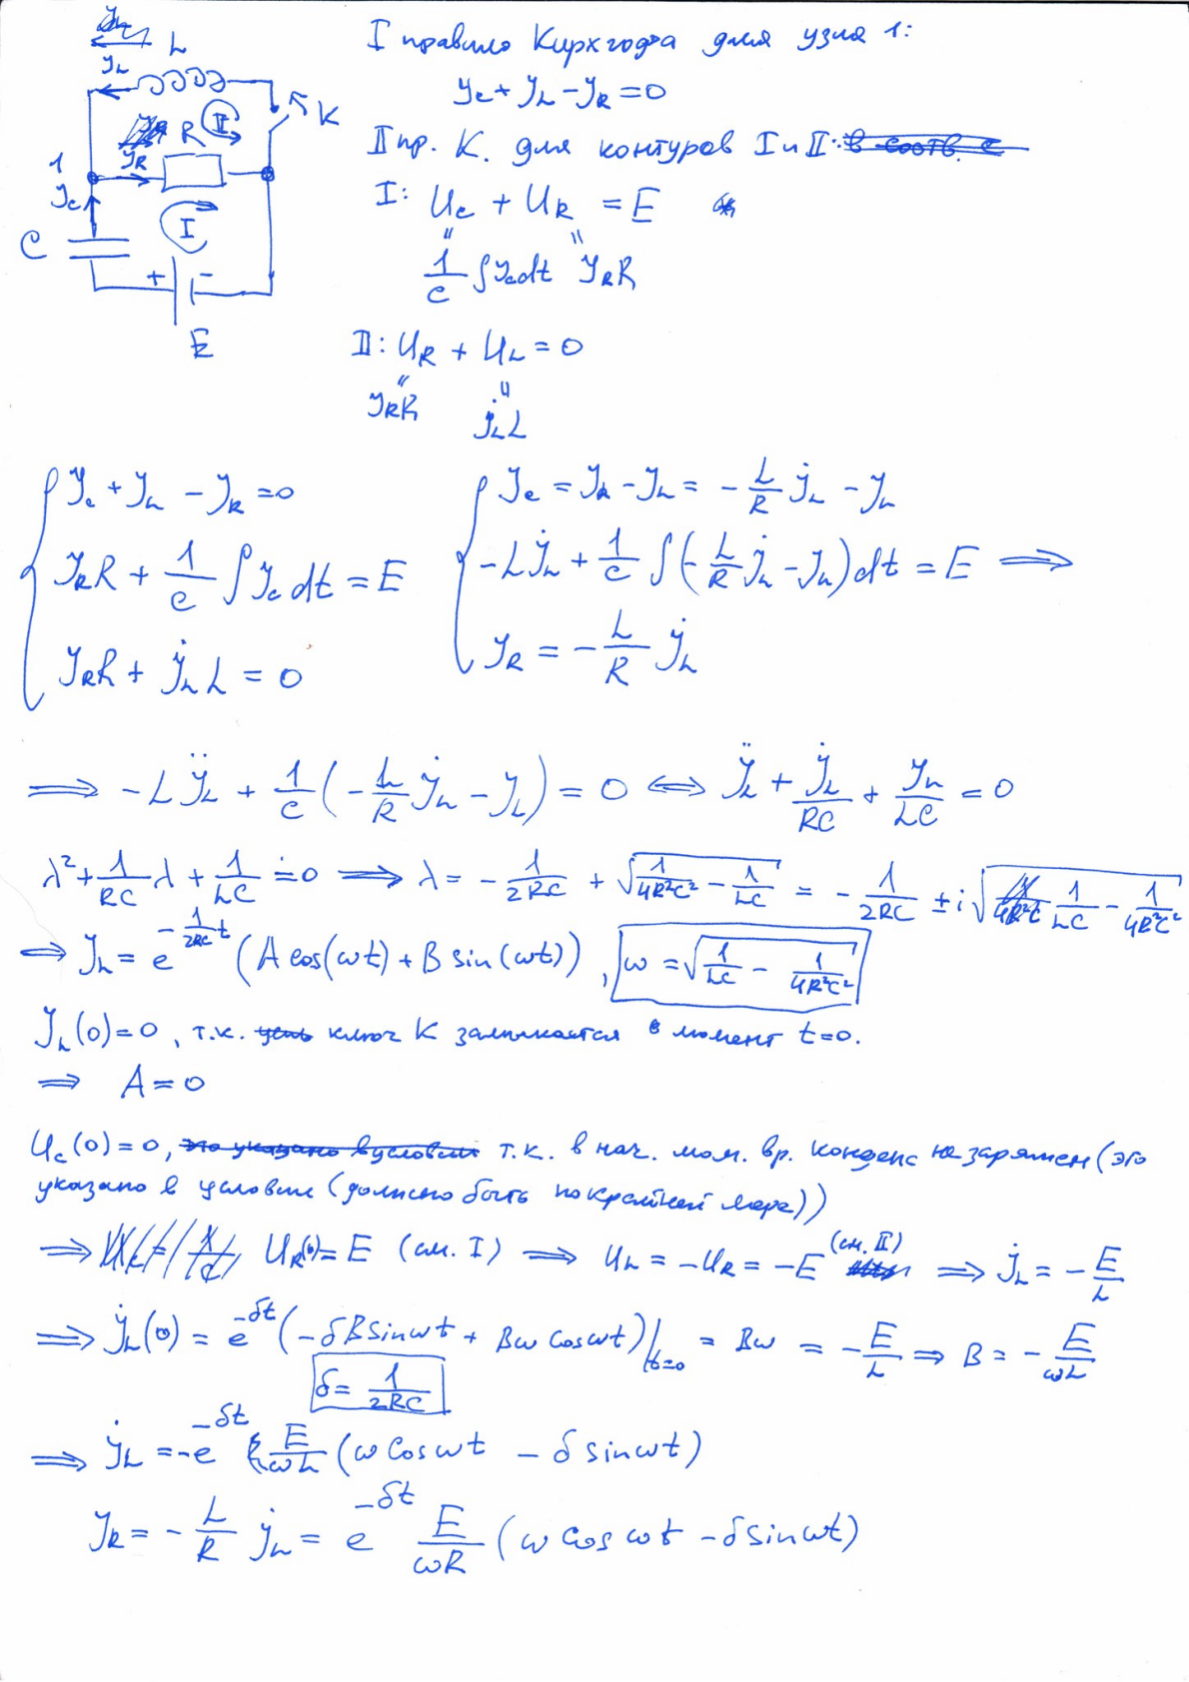 I правило Кирхгофа для узла 1:
J_C + J_L − J_R = 0
II пр. К. для контуров I и II:
I: U_C + U_R = E
1/C ∫J_C dt J_R R
II: U_R + U_L = 0
J_R R J̇_L L
L
J_L
K
R
II
1
J_R
J_C
I
C
+ −
E
{ J_C + J_L − J_R = 0
J_R R + 1/C ∫ J_C dt = E
J_R R + J̇_L L = 0
{ J_C = J_R − J_L = − L/R J̇_L − J_L
−L J̇_L + 1/C ∫(− L/R J̇_L − J_L) dt = E ⟹
J_R = − L/R J̇_L
⟹ −L J̈_L + 1/C (− L/R J̇_L − J_L) = 0 ⟺ J̈_L + J̇_L/RC + J_L/LC = 0
λ² + 1/RC λ + 1/LC = 0 ⟹ λ = − 1/2RC + √(1/4R²C² − 1/LC) = − 1/2RC ± i √(1/LC − 1/4R²C²)
⟹ J_L = e^(−1/2RC t) (A cos(ωt) + B sin(ωt)), ω = √(1/LC − 1/4R²C²)
J_L(0) = 0, т.к. ключ К замыкается в момент t=0.
⟹ A = 0
U_C(0) = 0, т.к. в нач. мом. вр. конденс не заряжен (это
указано в условии (должно быть по крайней мере))
⟹ U_R(0) = E (см. I) ⟹ U_L = −U_R = −E (см. II) ⟹ J̇_L = − E/L
⟹ J̇_L(0) = e^(−δt) (−δB sin ωt + Bω cos ωt)|_(t=0) = Bω = − E/L ⟹ B = − E/ωL
δ = 1/2RC
⟹ J̇_L = −e^(−δt) E/ωL (ω cos ωt − δ sin ωt)
J_R = − L/R J̇_L = e^(−δt) E/ωR (ω cos ωt − δ sin ωt)